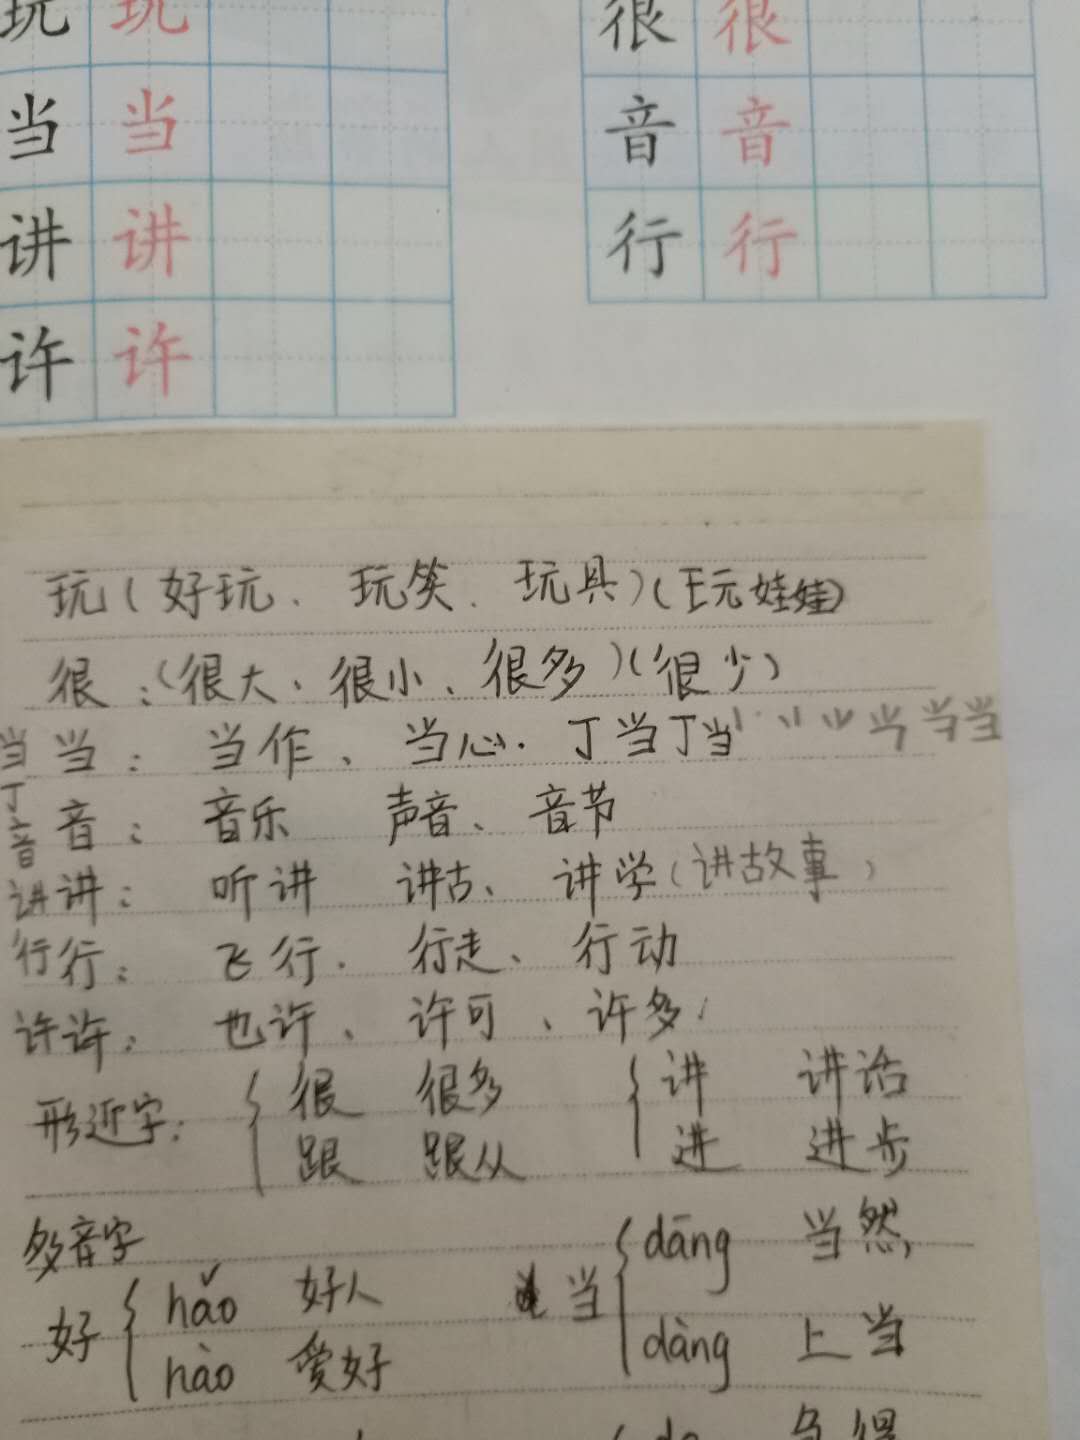 玩 玩 很 很
当 当 音 音
讲 讲 行 行
许 许
玩(好玩、玩笑、玩具)(玩娃娃)
很:(很大、很小、很多)(很少)
当 当:当作、当心.丁当丁当 当当
丁
音 音:音乐 声音、音节
讲 讲:听讲 讲古、讲学(讲故事)
行 行:飞行.行走、行动
许 许:也许、许可、许多
形近字:{很 很多 {讲 讲话
跟 跟从 进 进步
多音字
好{hǎo 好人 当{dāng 当然,
hào 爱好 dàng 上当